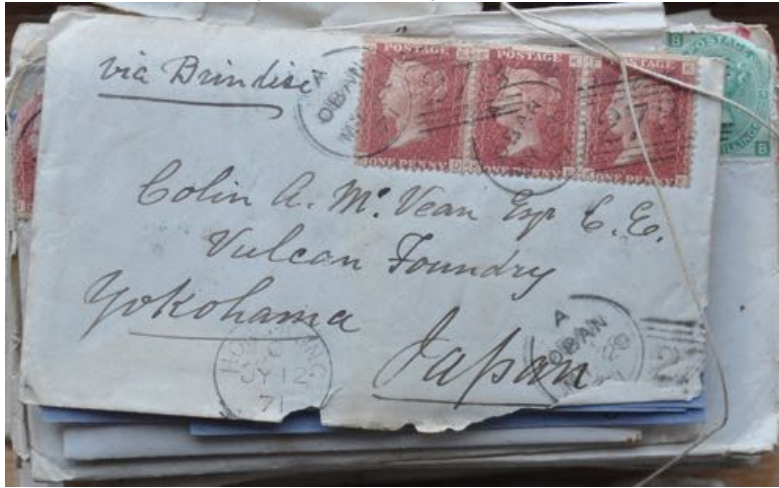 via Brindisi
A
OBAN
POSTAGE
POSTAGE
POSTAGE
ONE PENNY
ONE PENNY
ONE PENNY
Colin A. Mc.Vean Esq C.E.
Vulcan Foundry
Yokohama
Japan
HONG KONG
JY 12
71
A
OBAN
20